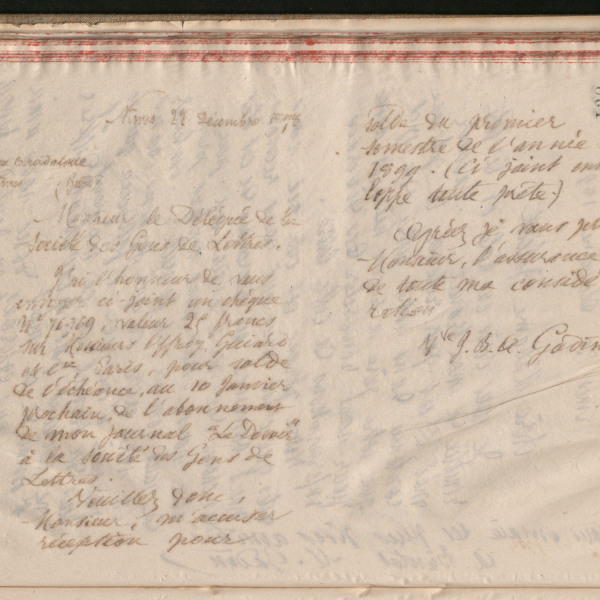 Nimes 29 Decembre
Guadaloue
Monsieur le Délégué de la
Société des Gens de Lettres.
J'ai l'honneur de vous
envoyer ci-joint un chèque
N° 76.769, valeur 25 francs
sur Messieurs Offroy, Guiard
et Cie, Paris, pour solde
de l'échéance, au 10 Janvier
prochain, de l'abonnement
de mon journal "Le Devoir"
à la Société des Gens de
Lettres.
Veuillez donc,
Monsieur, m'accuser
réception pour
solde du premier
semestre de l'année
1899. (Ci joint env
loppe toute prête.)
Agréez je vous pr
Monsieur, l'assurance
de toute ma considé
ration
Vve J. B. A. Godin